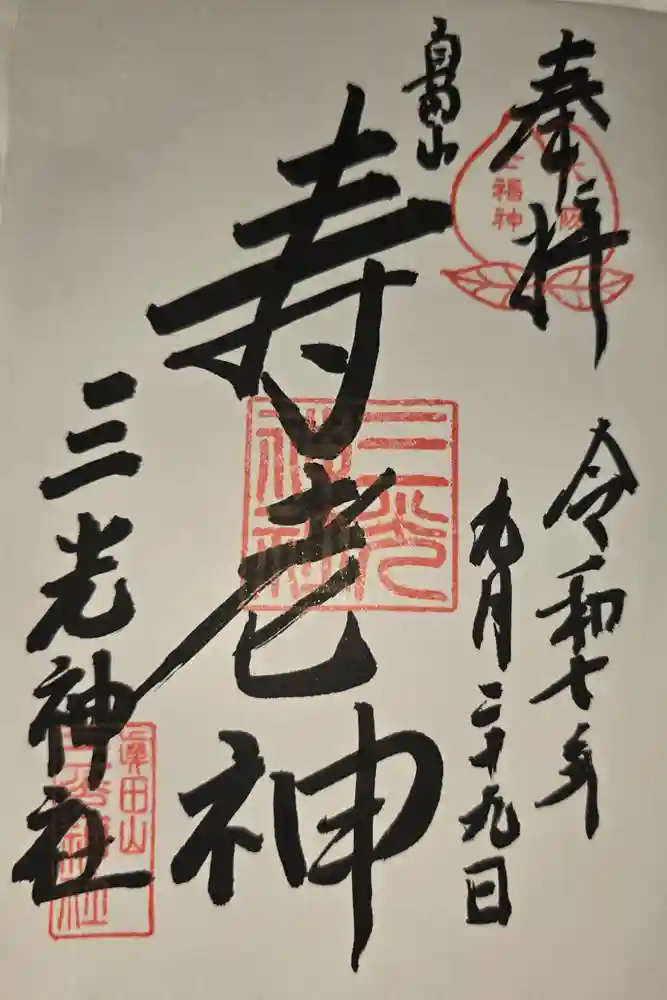 奉拝
大阪
七福神
令和七年
九月二十九日
真田山
寿老神
三光
神社
三光神社
眞田山
三光神社